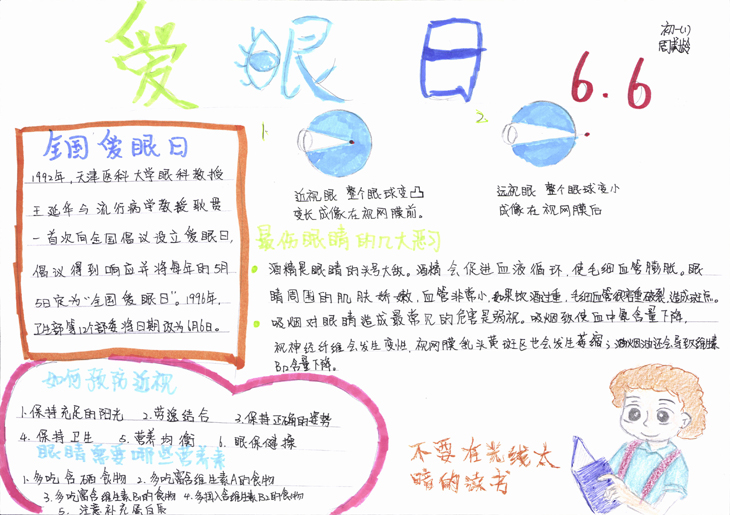 爱眼日
6.6
初一(1)
全国爱眼日
1992年,天津医科大学眼科教授
王延华与流行病学教授耿贯
一首次向全国倡议设立爱眼日,
倡议得到响应并将每年的5月
5日定为“全国爱眼日”。1996年,
卫生部等12个部委将日期改为6月6日。
1.
近视眼 整个眼球变凸
变长 成像在视网膜前。
2.
远视眼 整个眼球变小
成像在视网膜后
最伤眼睛的几大恶习
酒精是眼睛的头号大敌。酒精会促进血液循环,使毛细血管膨胀。眼
睛周围的肌肤娇嫩,血管非常小,如果饮酒过量,毛细血管很容易破裂,造成斑点。
吸烟对眼睛造成最常见的危害是弱视。吸烟致使血中氧含量下降,
视神经纤维会发生变性,视网膜乳头黄斑区也会发生萎缩;
B12含量下降。
如何预防近视
1.保持充足的阳光 2.劳逸结合 3.保持正确的姿势
4.保持卫生 5.营养均衡 6.眼保健操
眼睛需要哪些营养素
1.多吃含硒食物 2.多吃富含维生素A的食物
3.多吃富含维生素B1的食物 4.多摄入含维生素B2的食物
5.注意补充蛋白质
不要在光线太
暗的读书